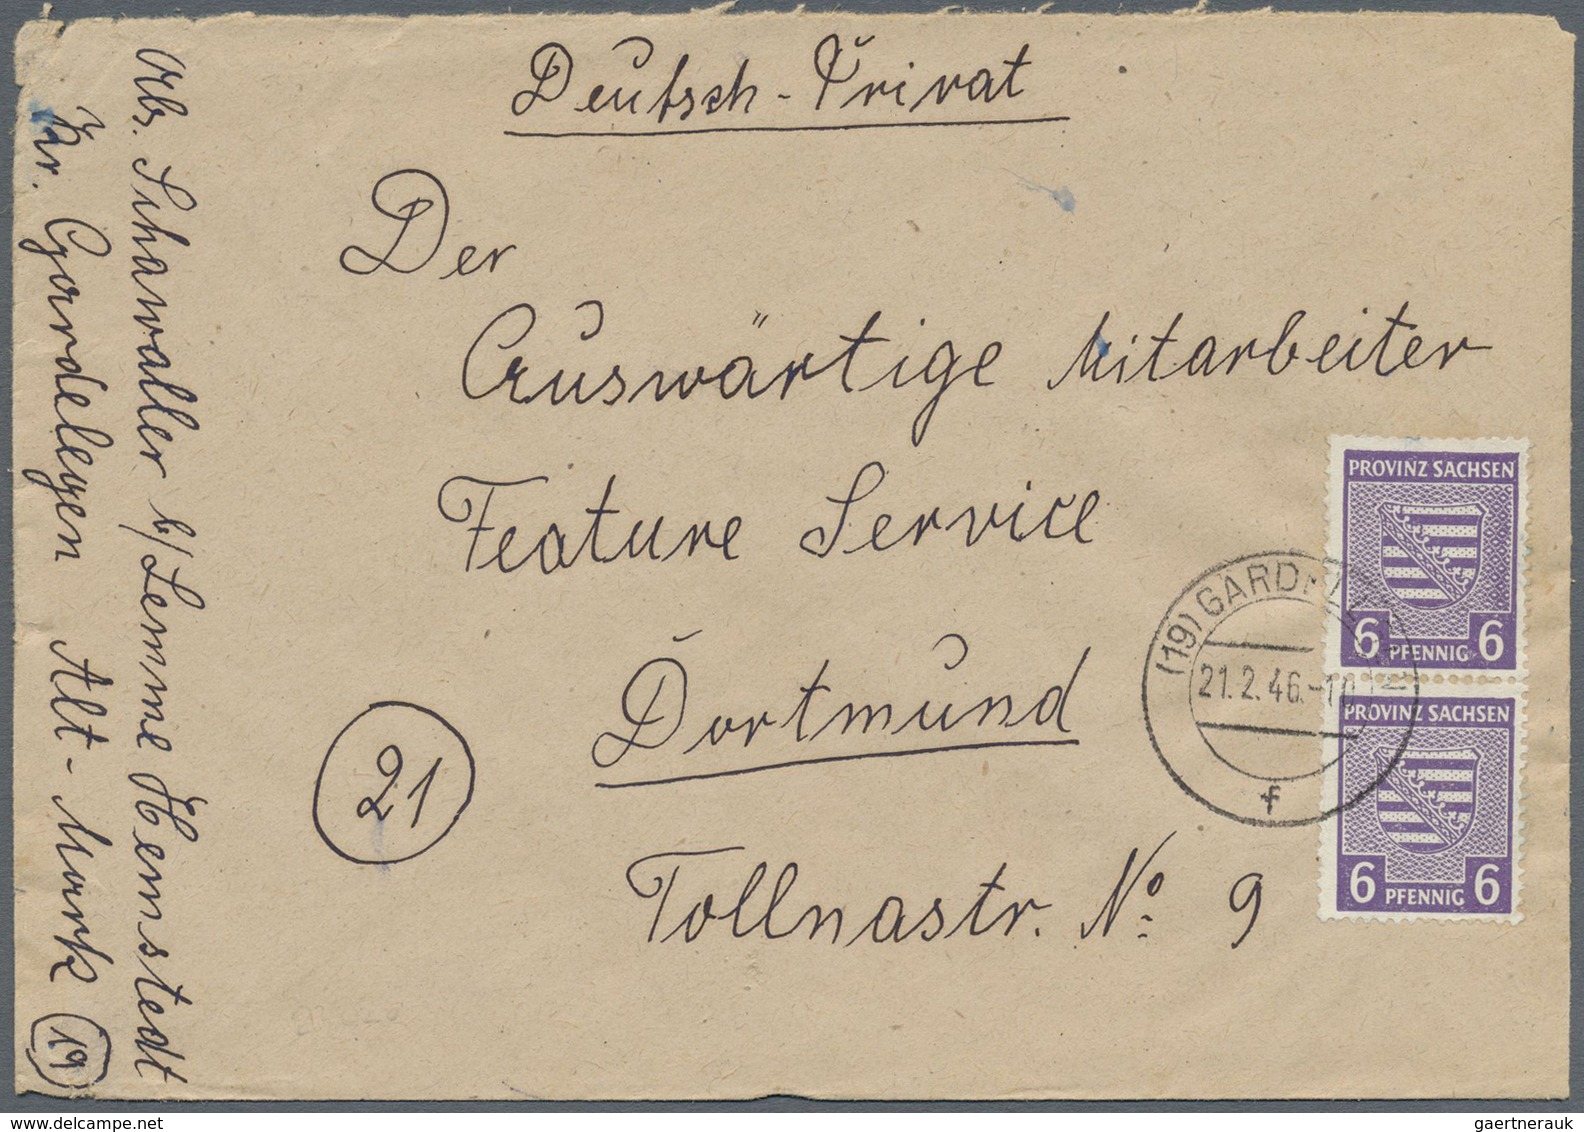 Deutsch-Privat
Der
Auswärtige Mitarbeiter
Feature Service
Dortmund
21
Tollnastr. No: 9
Abs. Schawaller b/Lemme Hemstedt
Kr. Gardelegen Alt-Mark (19)
PROVINZ SACHSEN
6 PFENNIG 6
(19) GARDELEGEN
21.2.46.-10
f
PROVINZ SACHSEN
6 PFENNIG 6
gaertnerauk